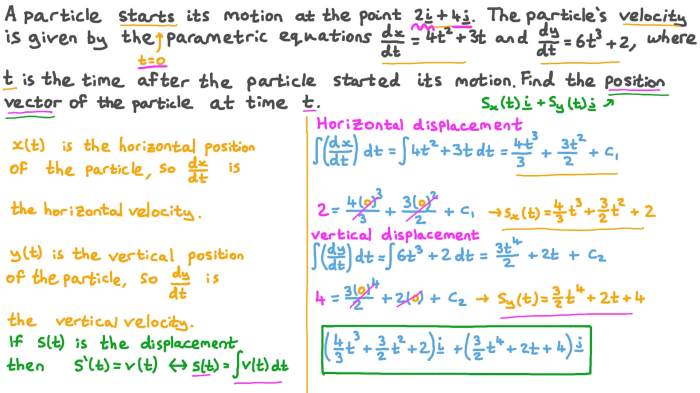 A particle starts its motion at the point 2i + 4j. The particle's velocity
is given by the parametric equations dx/dt = 4t² + 3t and dy/dt = 6t³ + 2, where
t=0
t is the time after the particle started its motion. Find the position
vector of the particle at time t.
Sx(t)i + Sy(t)j
x(t) is the horizontal position
of the particle, so dx/dt is
the horizontal velocity.
y(t) is the vertical position
of the particle, so dy/dt is
the vertical velocity.
If s(t) is the displacement
then s'(t) = v(t) ↔ s(t) = ∫v(t) dt
Horizontal displacement
∫(dx/dt) dt = ∫4t² + 3t dt = 4t³/3 + 3t²/2 + C₁
2 = 4(0)³/3 + 3(0)²/2 + C₁ → Sx(t) = 4/3 t³ + 3/2 t² + 2
vertical displacement
∫(dy/dt) dt = ∫6t³ + 2 dt = 3t⁴/2 + 2t + C₂
4 = 3(0)⁴/2 + 2(0) + C₂ → Sy(t) = 3/2 t⁴ + 2t + 4
(4/3 t³ + 3/2 t² + 2)i + (3/2 t⁴ + 2t + 4)j